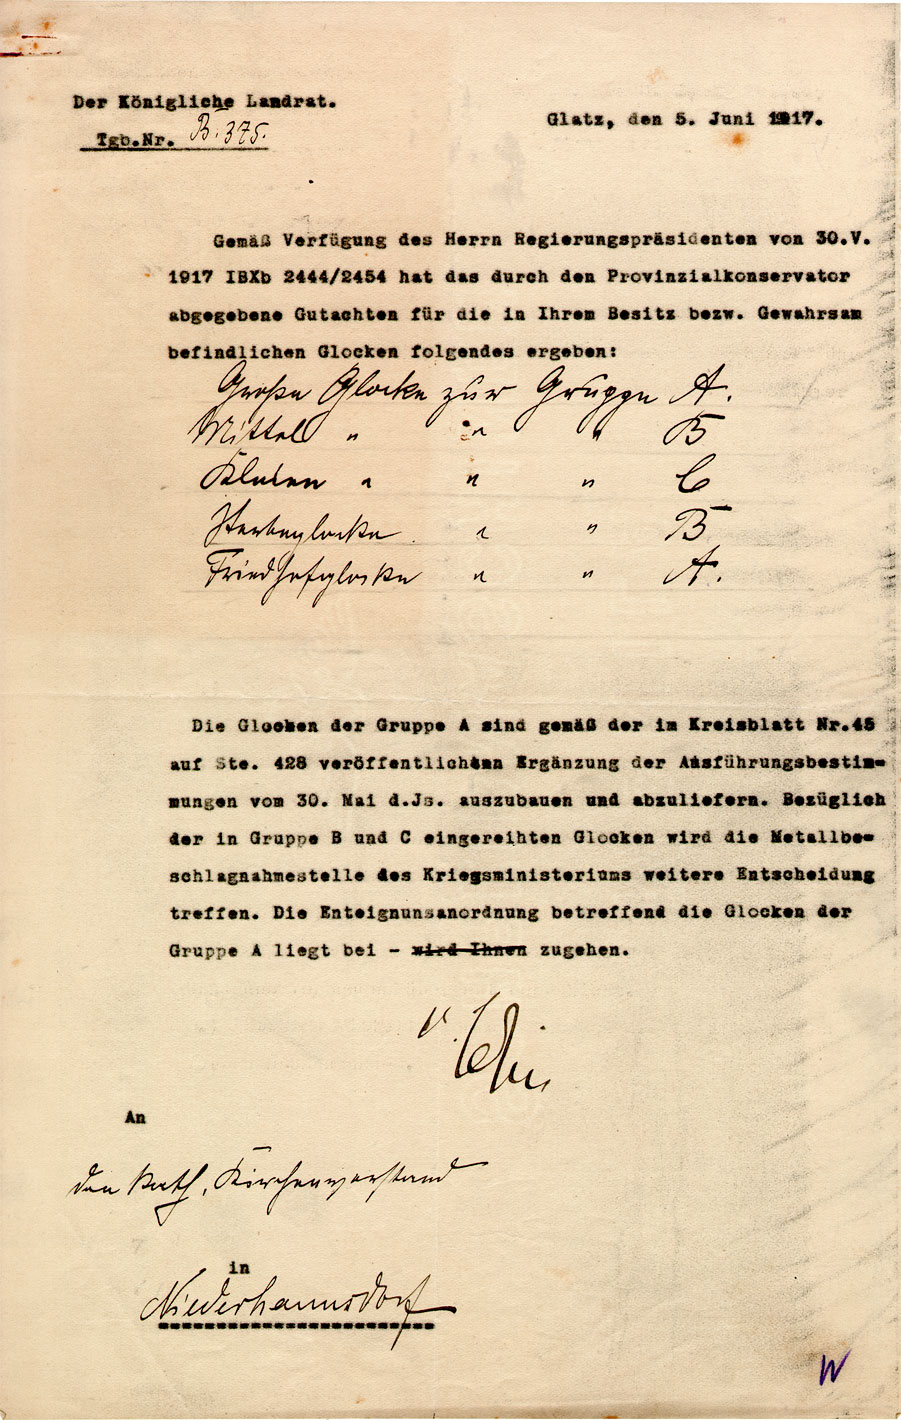 Der Königliche Landrat.
Tgb.Nr. B. 375.
Glatz, den 5. Juni 1917.
Gemäß Verfügung des Herrn Regierungspräsidenten von 30.V.
1917 IBXb 2444/2454 hat das durch den Provinzialkonservator
abgegebene Gutachten für die in Ihrem Besitz bezw. Gewahrsam
befindlichen Glocken folgendes ergeben:
Große Glocke zur Gruppe A.
Mittel " " " B
Kleine " " " C
Sterbeglocke " " B
Friedhofglocke " " A.
Die Glocken der Gruppe A sind gemäß der im Kreisblatt Nr.45
auf Ste. 428 veröffentlichten Ergänzung der Ausführungsbestim-
mungen vom 30. Mai d.Js. auszubauen und abzuliefern. Bezüglich
der in Gruppe B und C eingereihten Glocken wird die Metallbe-
schlagnahmestelle des Kriegsministeriums weitere Entscheidung
treffen. Die Enteignunsanordnung betreffend die Glocken der
Gruppe A liegt bei - wird Ihnen zugehen.
An
den kath. Kirchenvorstand
in
Niederhannsdorf
W